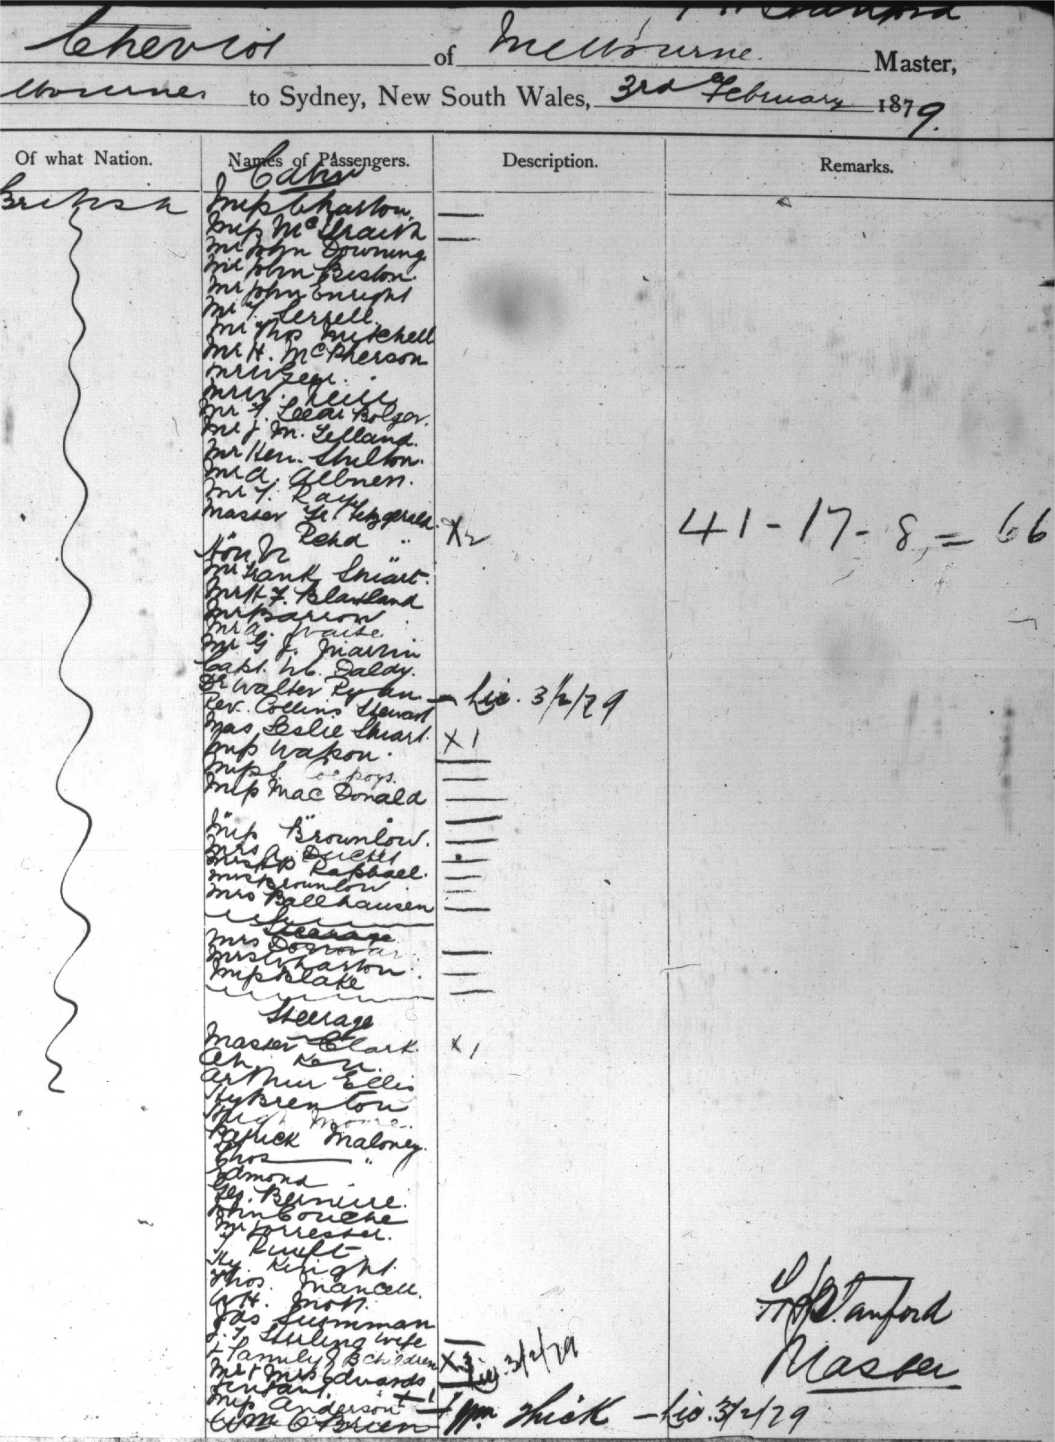 Stanford
Cheviot of Melbourne. Master,
lbourne to Sydney, New South Wales, 3rd February 1879.
Of what Nation. Names of Passengers. Description. Remarks.
Cabin
British Miss Wharton. —
Miss McGraith —
Mr John Downing
Mr John Beston.
Mr John Enright
Mr T. Serrell.
Mr Thos Mitchell
Mr H. McPherson
Mr W
Mr W.
Mr F. Bolger.
Mr J. M. Gelland.
Mr Hen. Shelton.
Mr A. Albnen.
Mr T. Ray
Master Fitzgerald. X2
Richd "
41-17-8,= 66
Hon
Mr Frank Stuart.
Mr H. F. Blaxland
Mr Barrow
Mr A. Waite
Mr G. J. Martin
Capt. W. C. Daldy.
Dr Walter Ryan. — Lic. 3/2/79
Rev. Collins Stewart
Mas Leslie Stuart. X1
Miss Watson. —
Miss —
Miss MacDonald —
" " —
Miss Brownlow. —
Mrs A. —
Mrs Raphael. —
Mrs Brownlow —
Mrs Ballhausen —
Steerage
Mrs Donovan —
Mrs Wharton. —
Miss Blake —
Steerage
Master Clark. X1
Ah Ken.
Arthur Ellis
Hy Brenton
Hugh Moore.
Patrick Maloney.
Thos "
Edmond
Geo.
John Couche
Mr Forrester.
J
Hy. Knight.
Thos. Mancell.
W.H. Mott.
Jas Summan
J. T. Stirling wife —
+ Family 3 children X3 Lic. 3/2/79
Mr + Mrs Edwards —
Servant.
Miss Anderson X1 —
Wm O'Brien 1 Wm Thick — Lic. 3/2/79
Stanford
Master